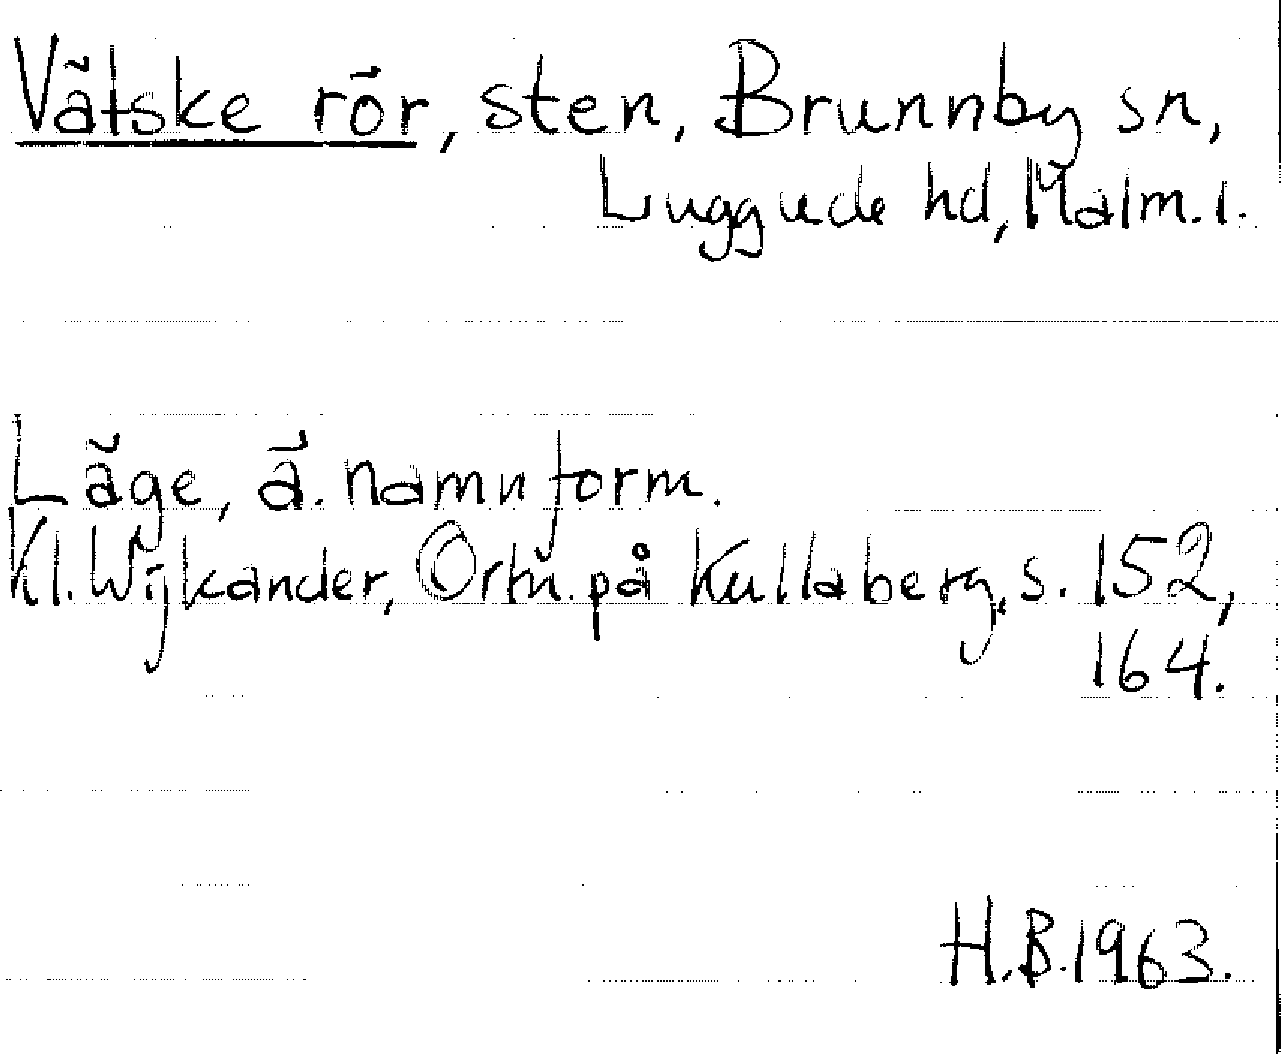 Vätske rör, sten, Brunnby sn,
Luggude hd, Malm. l.
Läge, ä. namnform.
Kl. Wijkander, Ortn. på Kullaberg, s. 152,
164.
H.B. 1963.